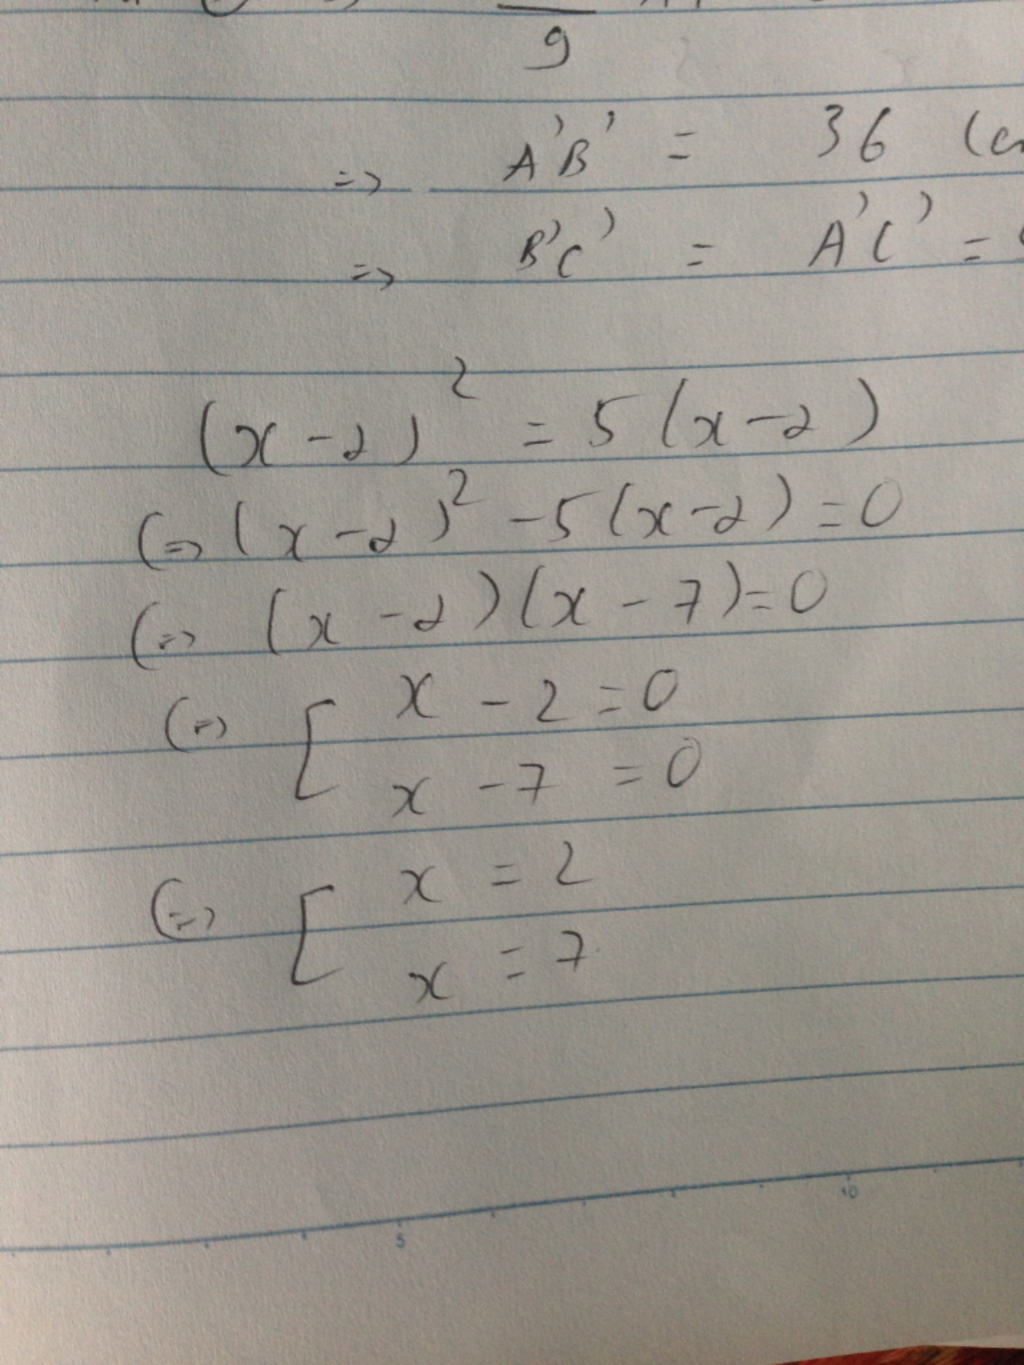 9
=> A'B' = 36 (c
=> B'C' = A'C' =
(x-2)² = 5(x-2)
(=> (x-2)² -5(x-2)=0
(=> (x-2)(x-7)=0
(=> [ x-2=0
x-7=0
(=> [ x = 2
x = 7
5 10